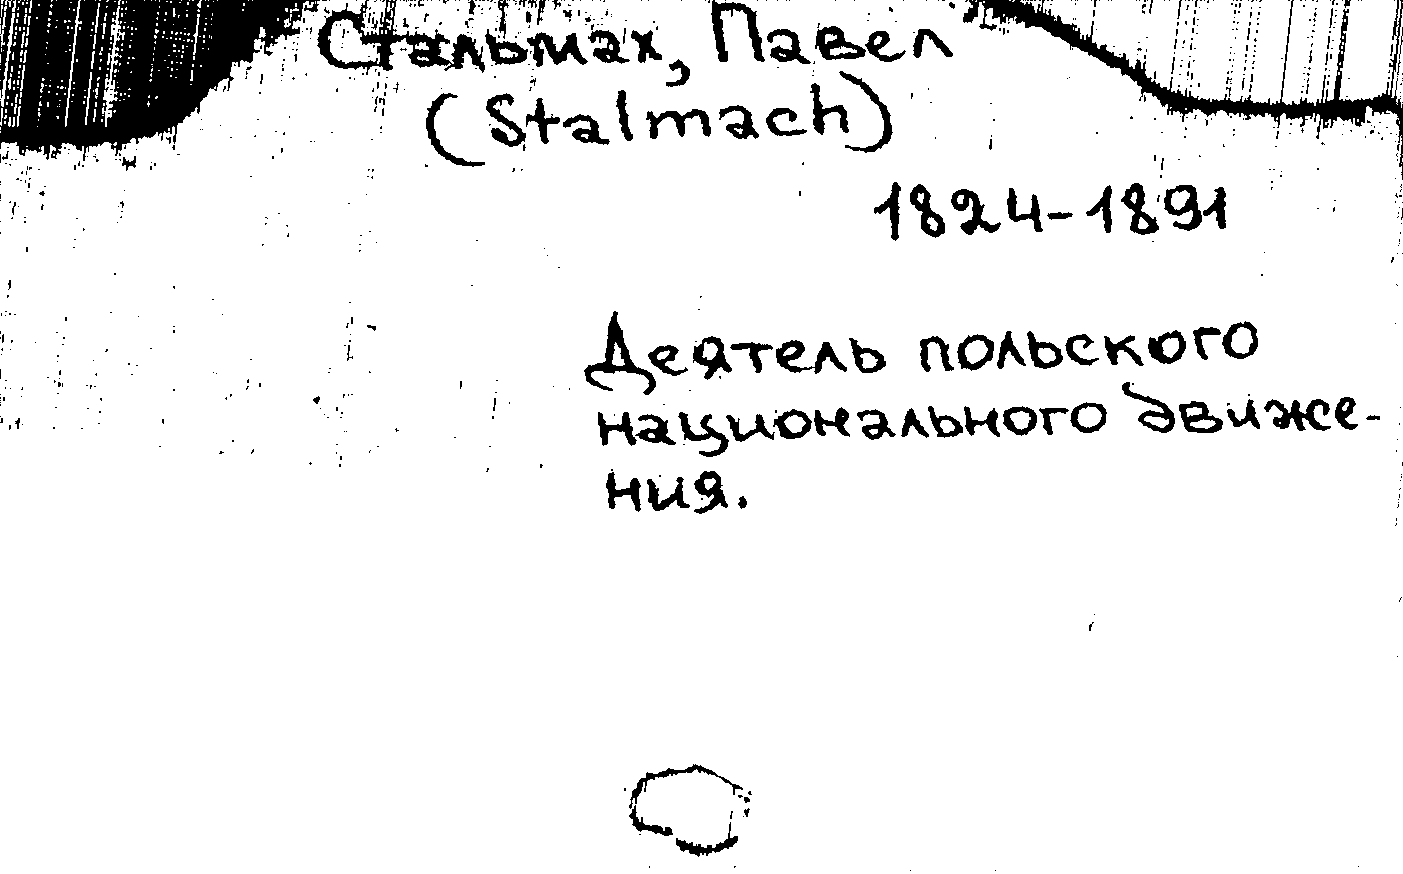 Стальмах, Павел
(Stalmach)
1824-1891
Деятель польского
национального движе-
ния.